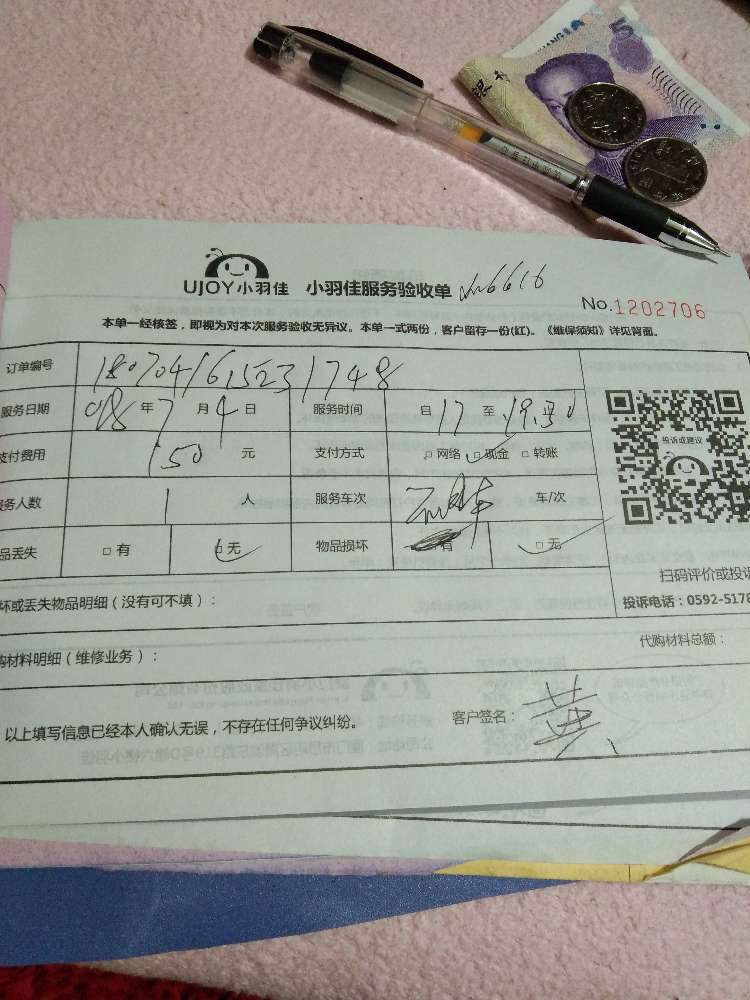 UJOY小羽佳 小羽佳服务验收单
No.1202706
本单一经核签，即视为对本次服务验收无异议。本单一式两份，客户留存一份(红)。《维保须知》详见背面。
订单编号 18070416152317 48
服务日期 018年7月4日 服务时间 自17至19.30
支付费用 150元 支付方式 □网络 □现金 □转账
投诉或建议
服务人数 1人 服务车次 车/次
品丢失 □有 □无 物品损坏 有 □无
扫码评价或投诉
坏或丢失物品明细（没有可不填）：
投诉电话：0592-5178
购材料明细（维修业务）：
代购材料总额：
以上填写信息已经本人确认无误，不存在任何争议纠纷。
客户签名：黄
5